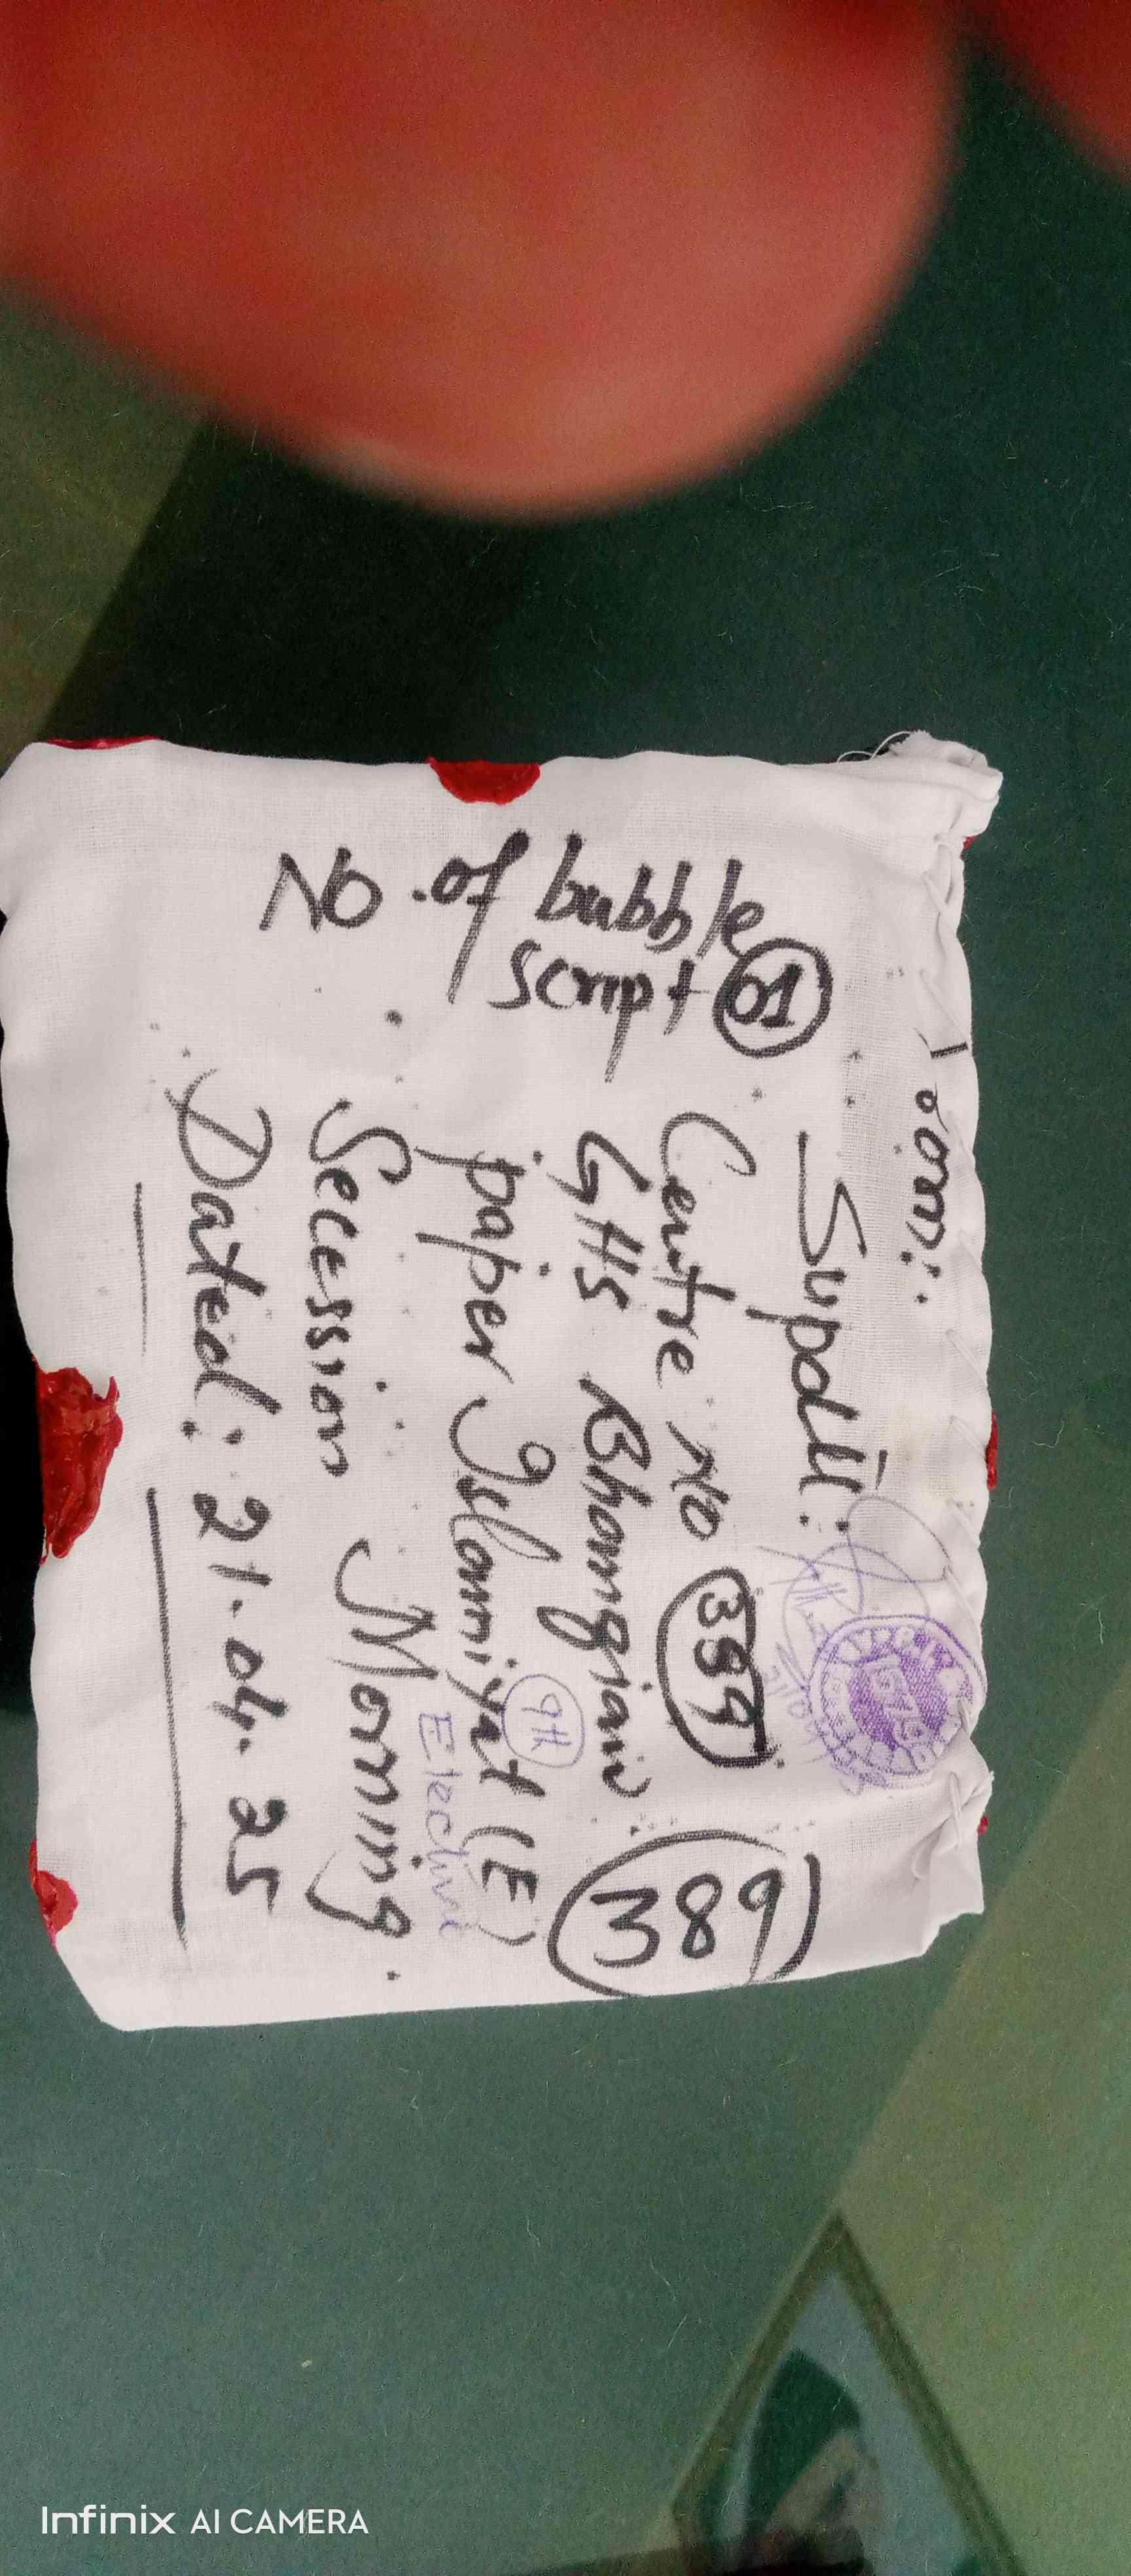 Supdtt:
Centre No 389
GHS Bhangian 389
9th
paper Islamiyat (E)
Elective
Secession Morning.
Dated: 21.04.25
No. of bubble
script 01
Infinix AI CAMERA